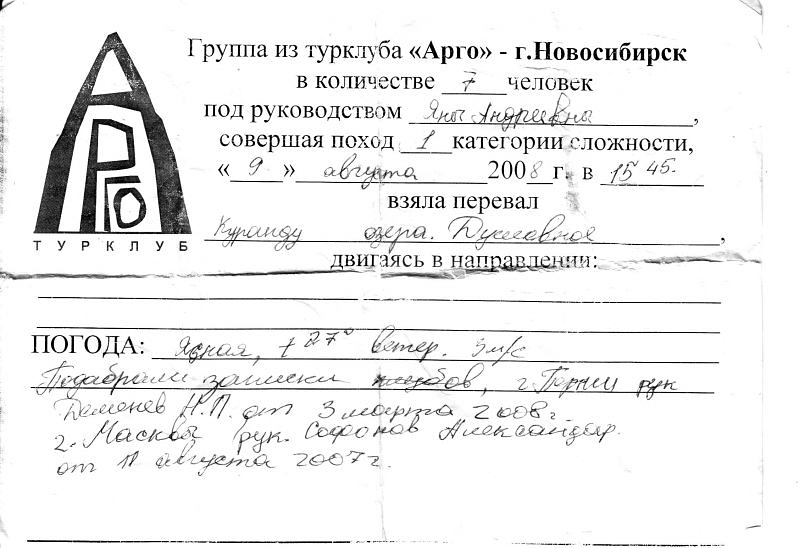 АРГО
ТУРКЛУБ
Группа из турклуба «Арго» - г.Новосибирск
в количестве 7 человек
под руководством Яны Андреевны,
совершая поход 1 категории сложности,
«9» августа 2008 г. в 15 45.
взяла перевал
Куранду озера.
двигаясь в направлении:
ПОГОДА: Ясная, +27° Ветер. 3 м/с
Подабрали записки клубов, г. рук
Деменев Н.П. от 3 марта 2008г.
г. Масквы рук. Софонов Александр.
от 11 августа 2007г.